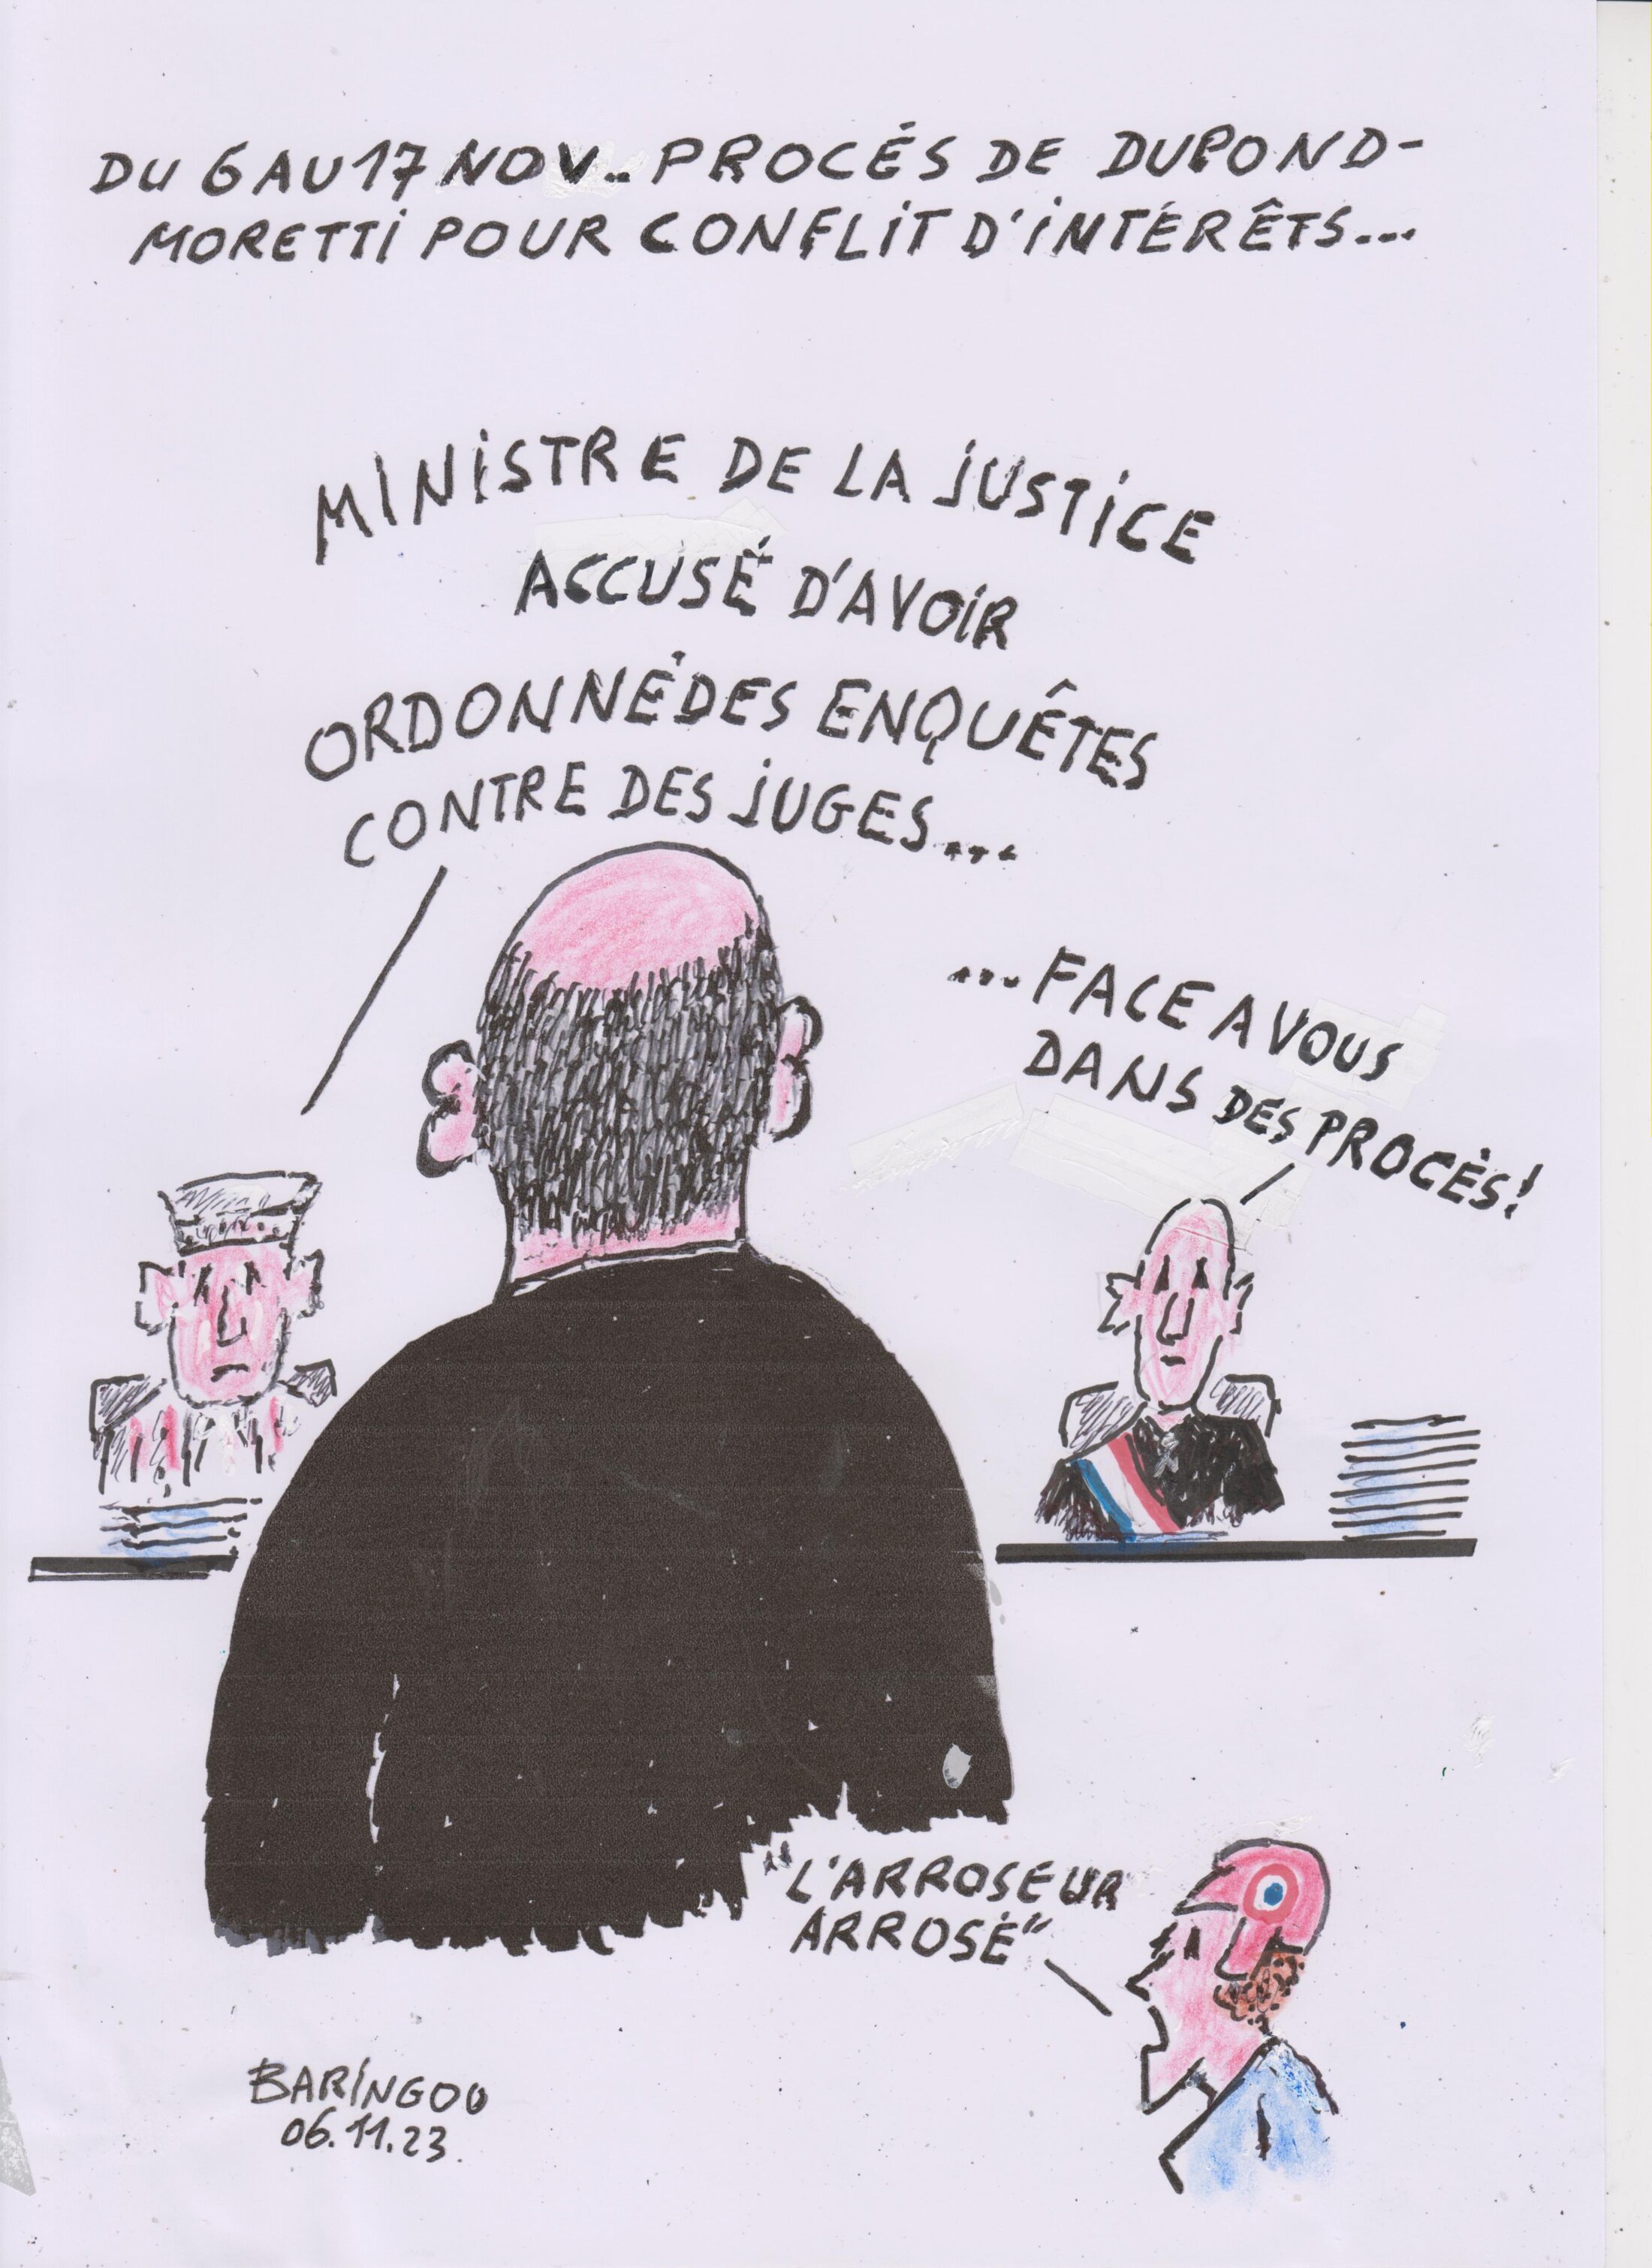 DU 6 AU 17 NOV.. PROCÉS DE DUPOND-
MORETTI POUR CONFLIT D'INTÉRÊTS...
MINISTRE DE LA JUSTICE
ACCUSÉ D'AVOIR
ORDONNÉ DES ENQUÊTES
CONTRE DES JUGES...
...FACE A VOUS
DANS DES PROCÈS!
"L'ARROSEUR
ARROSÉ"
BARINGOU
06.11.23.